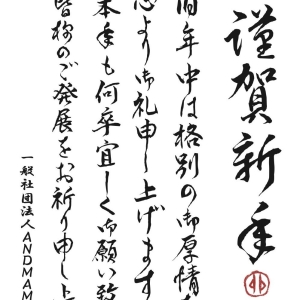 謹賀新年
旧年中は格別の御厚情
心より御礼申し上げます
本年も何卒宜しく御願い致
皆様のご発展をお祈り申し上
一般社団法人ANDMAM